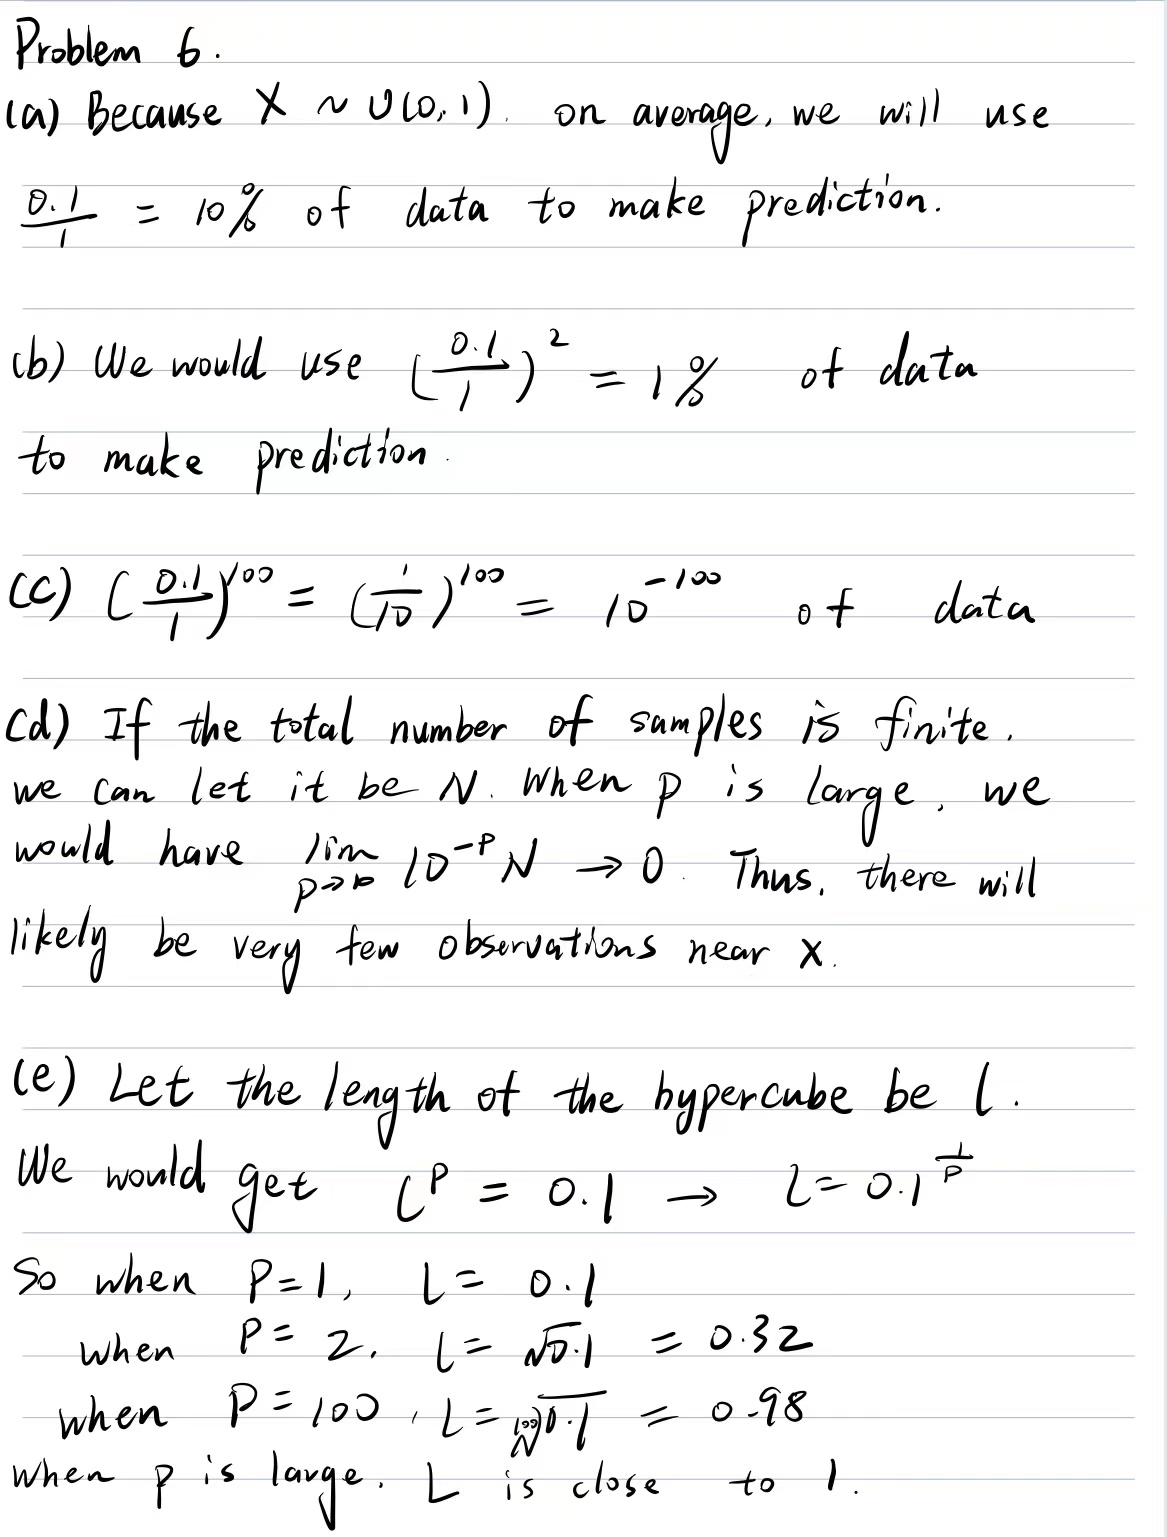 Problem 6.
(a) Because X ~ U(0,1). on average, we will use
0.1/1 = 10% of data to make prediction.
(b) We would use (0.1/1)^2 = 1% of data
to make prediction.
(c) (0.1/1)^100 = (1/10)^100 = 10^-100 of data
(d) If the total number of samples is finite.
we can let it be N. When p is large, we
would have lim p→∞ 10^-p N → 0. Thus, there will
likely be very few observations near x.
(e) Let the length of the hypercube be l.
We would get l^p = 0.1 → l = 0.1^(1/p)
So when P=1, l = 0.1
when P = 2, l = √0.1 = 0.32
when P = 100, l = ¹⁰⁰√0.1 = 0.98
when p is large, L is close to 1.